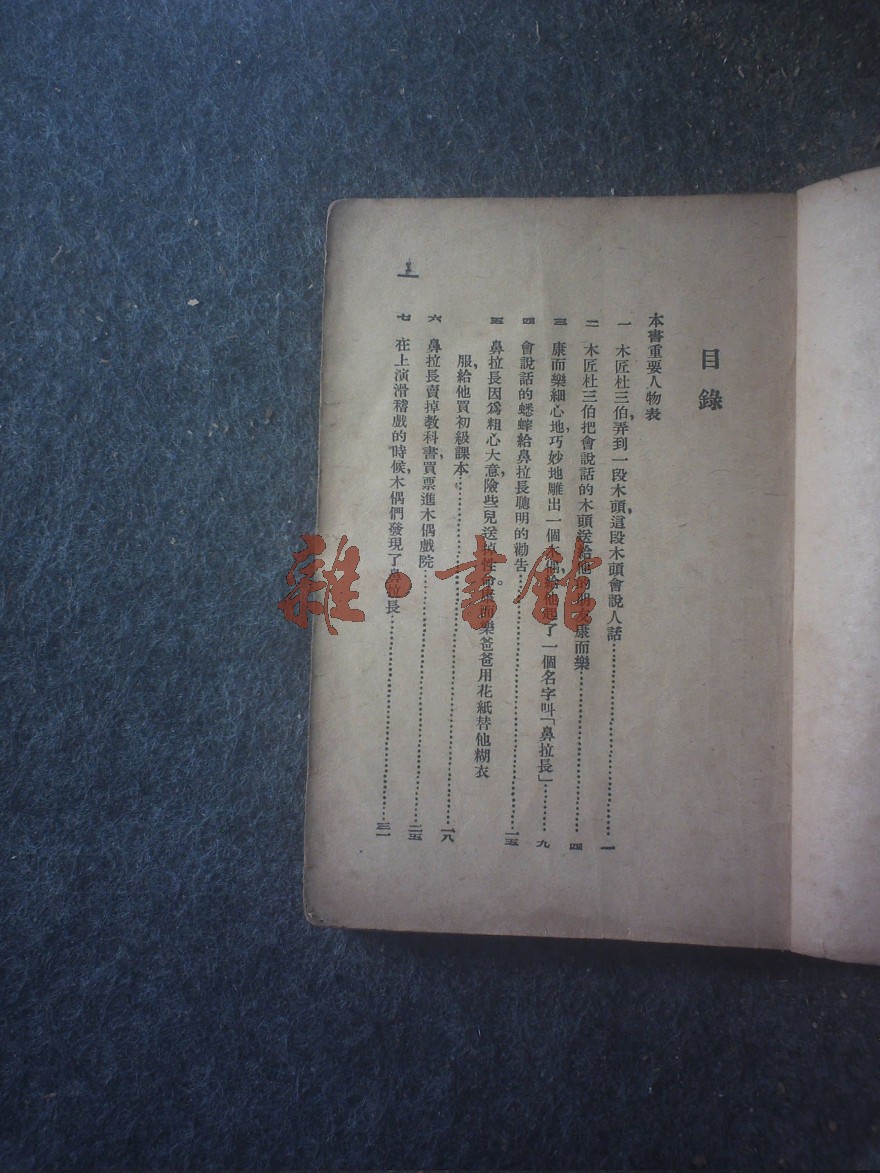 目錄
本書重要人物表
一 木匠杜三伯,弄到一段木頭,這段木頭會說人話……一
二 木匠杜三伯把會說話的木頭送給他的朋友康而樂……四
三 康而樂細心地,巧妙地雕出一個木偶,給他起了一個名字叫「鼻拉長」……九
四 會說話的蟋蟀給鼻拉長聰明的勸告……一五
五 鼻拉長因爲粗心大意,險些兒送掉性命。康而樂爸爸用花紙替他糊衣
服,給他買初級課本……一八
六 鼻拉長賣掉教科書,買票進木偶戲院……二五
七 在上演滑稽戲的時候,木偶們發現了鼻拉長……三一
雜·書館